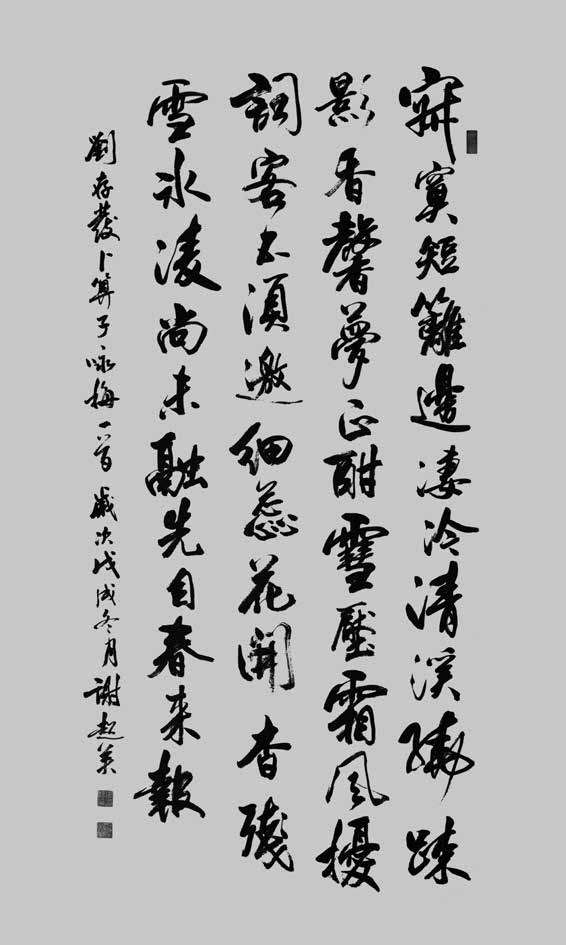 寂寞短籬邊凄冷清溪繞疎
影香馨夢正酣雪壓霜風擾
詞客不須邀細蕊花開杳殘
雪冰凌尚未融先自春来報
劉存發卜算子咏梅一首歲次戊戌冬月謝